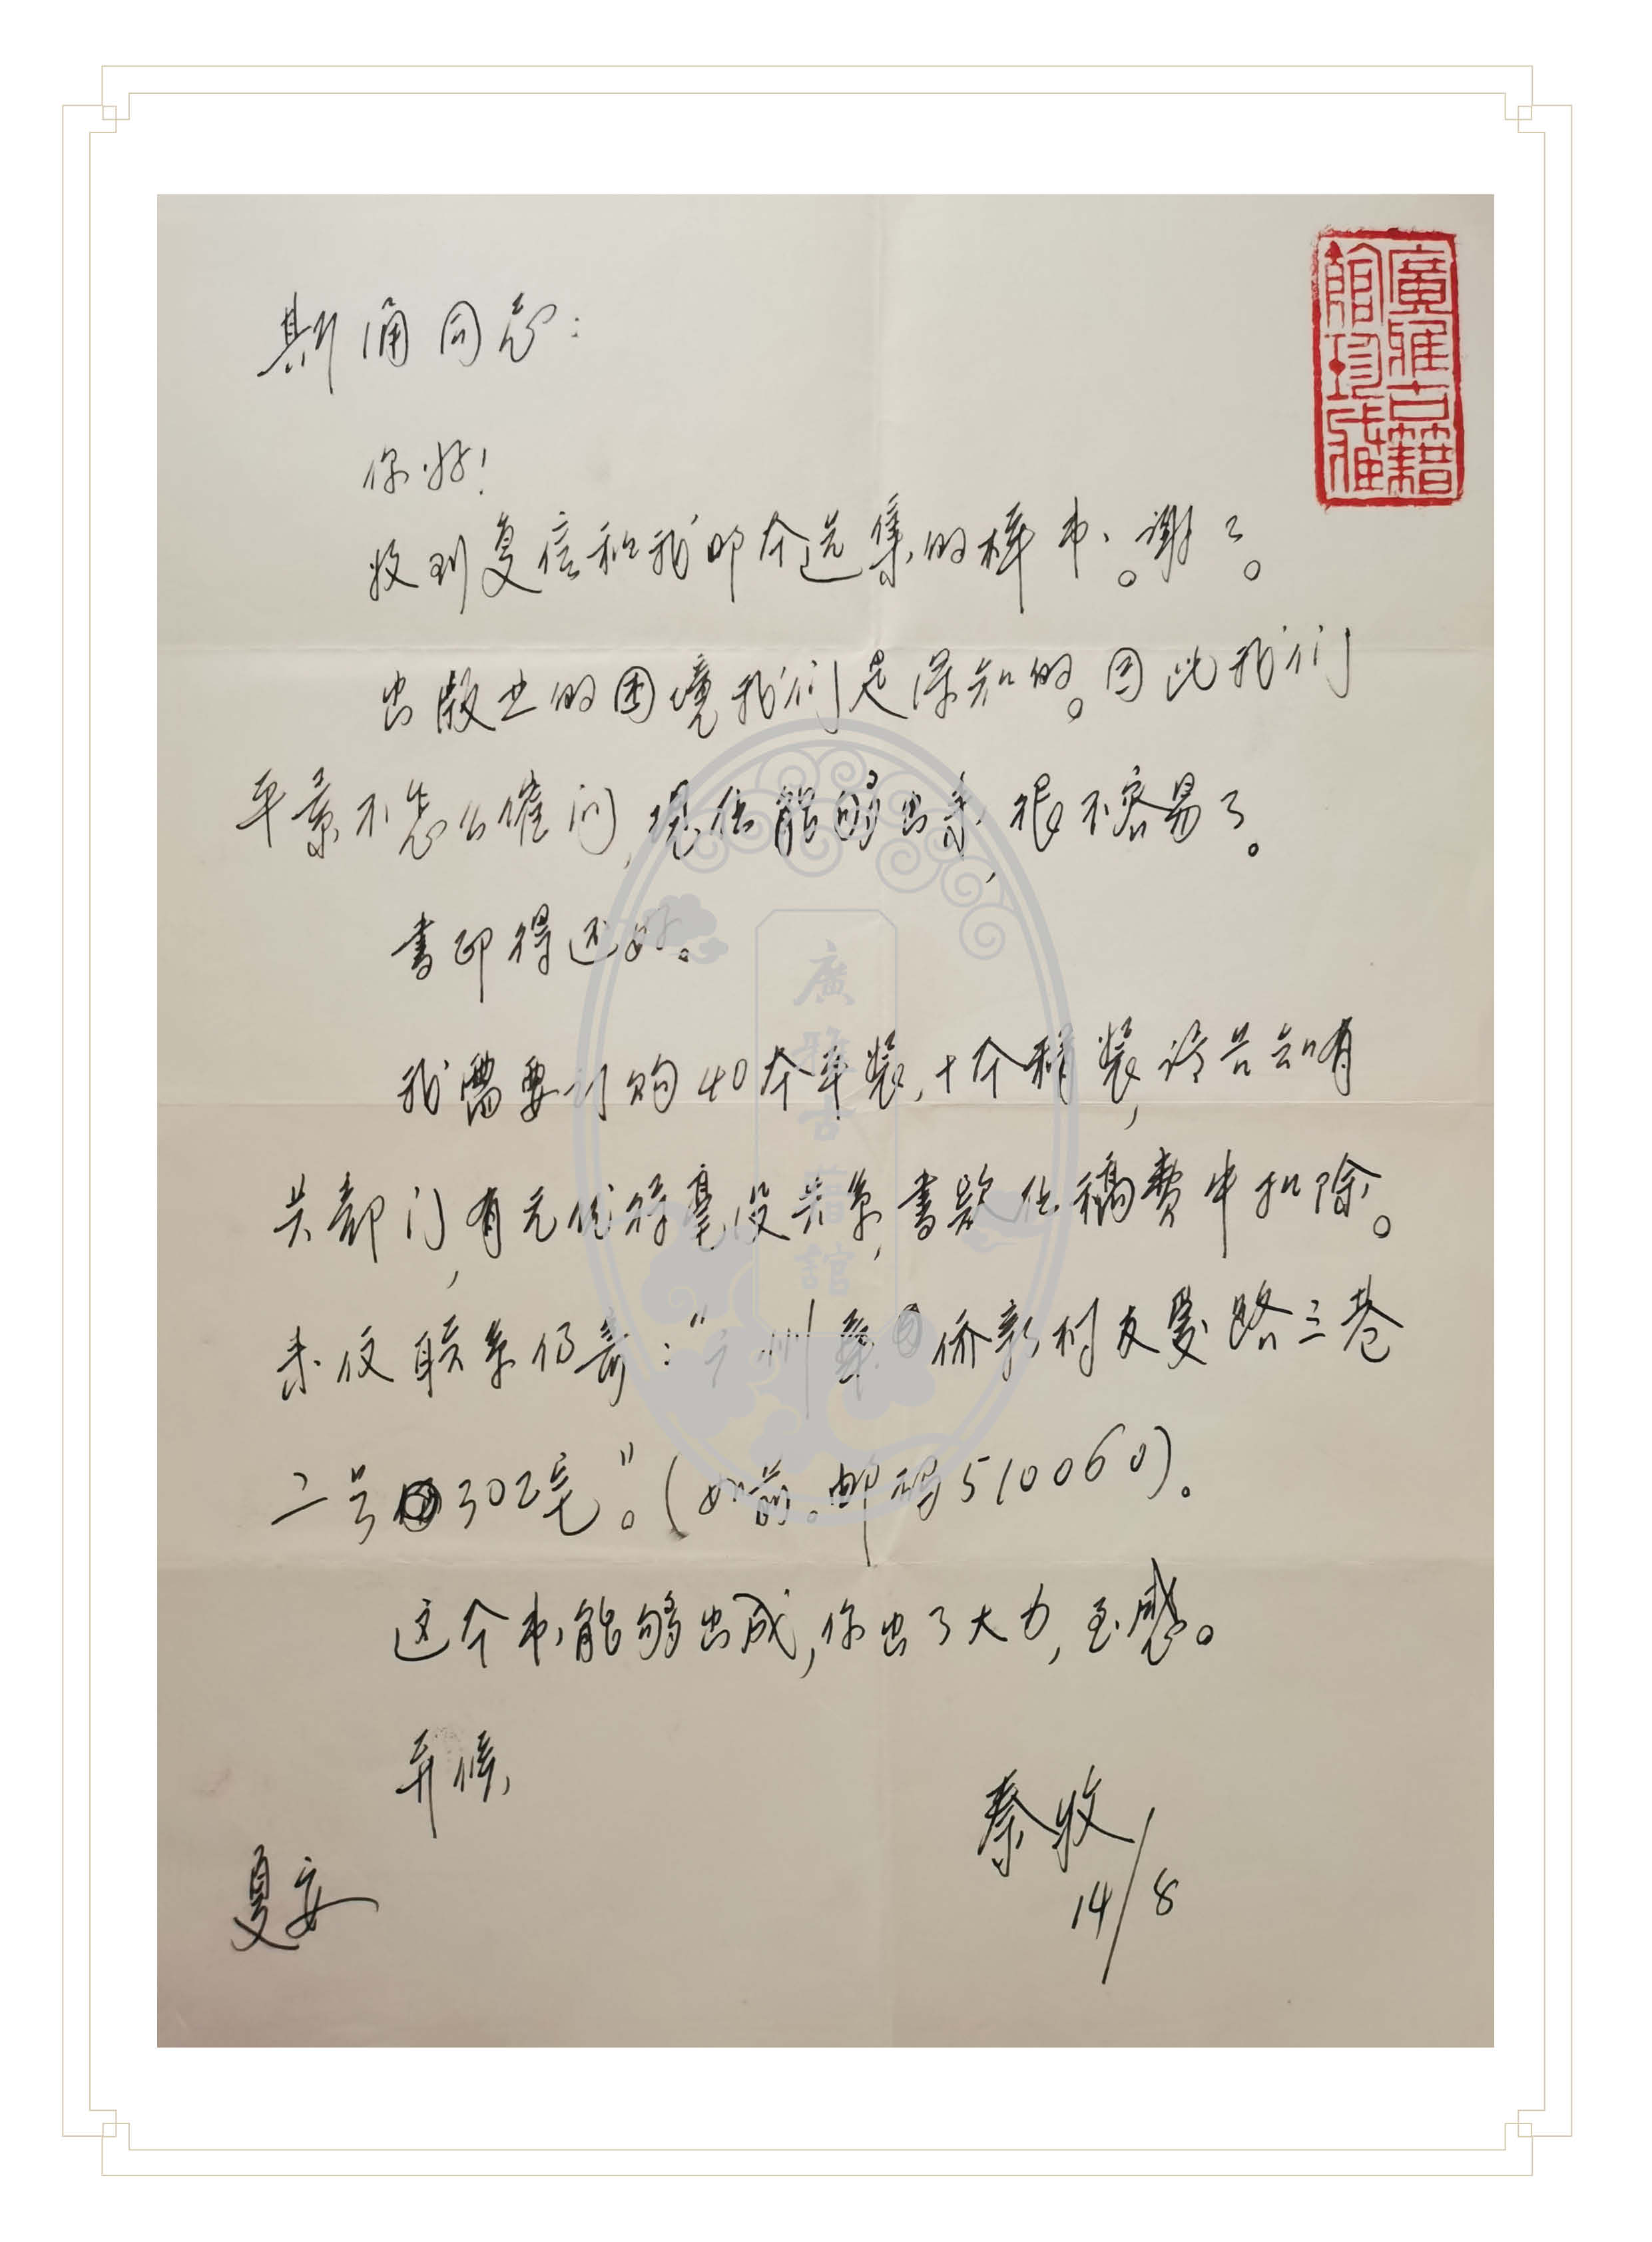 斯甬同志：
你好！
收到复信和我那个选集的样书。谢了。
出版业的困境我们是深知的。因此我们
平素不怎么催问，现在能够出来，很不容易了。
书印得还好。
我需要订购40本平装，十本精装，请告知有
关部门，有无优待毫没关系，书款在稿费中扣除。
来仅联系仍寄：“广州华侨新村友爱路三巷
二号302宅”。(如前。邮码510060)。
这个书能够出成，你出了大力，至感。
并候
夏安
秦牧
14/8
廣雅古籍
館珍張雅
廣雅古籍館